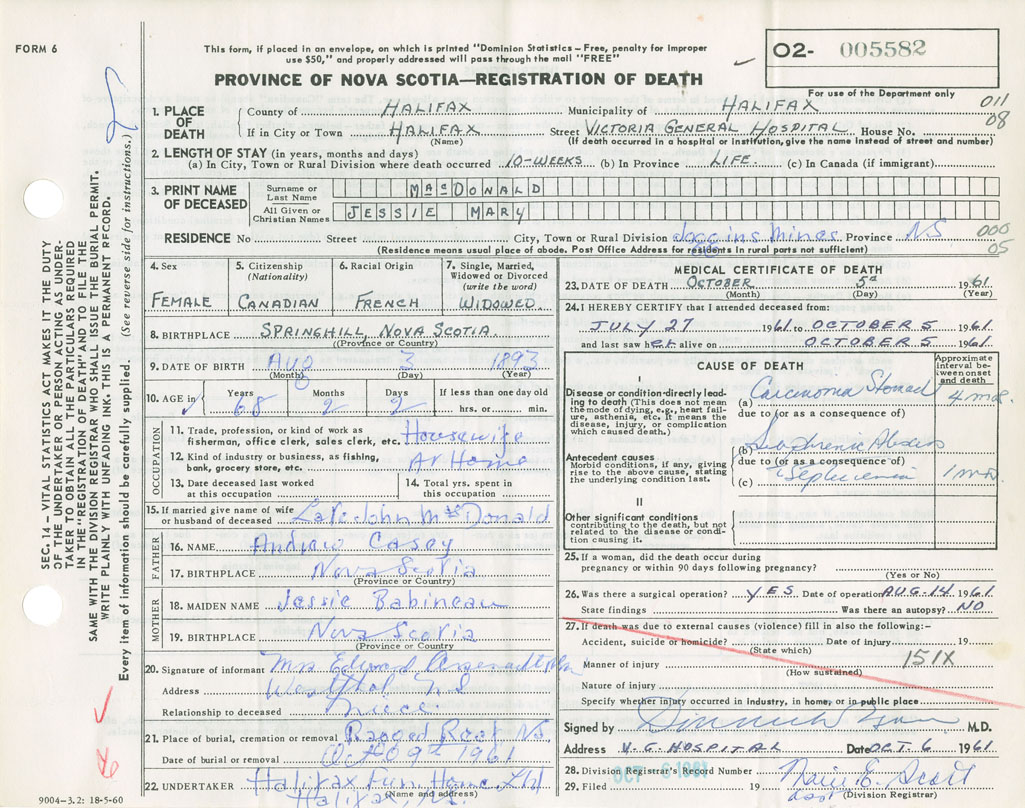 FORM 6
This form, if placed in an envelope, on which is printed "Dominion Statistics – Free, penalty for improper
use $50," and properly addressed will pass through the mail "FREE"
O2- 005582
PROVINCE OF NOVA SCOTIA—REGISTRATION OF DEATH
For use of the Department only
011
08
1. PLACE OF DEATH
County of HALIFAX Municipality of HALIFAX
If in City or Town HALIFAX Street VICTORIA GENERAL HOSPITAL House No.
(Name) (If death occurred in a hospital or institution, give the name instead of street and number)
2. LENGTH OF STAY (in years, months and days)
(a) In City, Town or Rural Division where death occurred 10-WEEKS (b) In Province LIFE (c) In Canada (if immigrant)
3. PRINT NAME OF DECEASED
Surname or Last Name MacDONALD
All Given or Christian Names JESSIE MARY
RESIDENCE No Street City, Town or Rural Division Joggins Mines Province NS
000
05
(Residence means usual place of abode. Post Office Address for residents in rural parts not sufficient)
4. Sex
FEMALE
5. Citizenship (Nationality)
CANADIAN
6. Racial Origin
FRENCH
7. Single, Married, Widowed or Divorced (write the word)
WIDOWED
8. BIRTHPLACE SPRINGHILL, NOVA SCOTIA.
(Province or Country)
9. DATE OF BIRTH Aug 3 1893
(Month) (Day) (Year)
8
10. AGE in Years Months Days If less than one day old
68 2 2 hrs. or min.
OCCUPATION
11. Trade, profession, or kind of work as
fisherman, office clerk, sales clerk, etc. Housewife
12. Kind of industry or business, as fishing,
bank, grocery store, etc. At Home
13. Date deceased last worked
at this occupation
14. Total yrs. spent in
this occupation
15. If married give name of wife
or husband of deceased Late John McDonald
FATHER
16. NAME Andrew Casey
17. BIRTHPLACE Nova Scotia
(Province or Country)
MOTHER
18. MAIDEN NAME Jessie Babineau
19. BIRTHPLACE Nova Scotia
(Province or Country)
20. Signature of informant Mrs Edward
Address N.S
Relationship to deceased Niece
21. Place of burial, cremation or removal Ragged Reef NS
Date of burial or removal Oct 09th 1961
22. UNDERTAKER Halifax Fun. Home Ltd
(Name and address)
Halifax N.S.
9004–3.2: 18-5-60
MEDICAL CERTIFICATE OF DEATH
23. DATE OF DEATH OCTOBER 5th 1961
(Month) (Day) (Year)
24. I HEREBY CERTIFY that I attended deceased from:
JULY 27 1961 to OCTOBER 5 1961
and last saw her alive on OCTOBER 5 1961
CAUSE OF DEATH
Approximate interval between onset and death
I
Disease or condition directly leading to death (This does not mean the mode of dying, e.g., heart failure, asthenia, etc. It means the disease, injury, or complication which caused death.)
(a) Carcinoma Stomach 4 mos.
due to (or as a consequence of)
Antecedent causes
Morbid conditions, if any, giving rise to the above cause, stating the underlying condition last.
(b) Subphrenic Abscess
due to (or as a consequence of)
(c) Septicemia 1 mth.
II
Other significant conditions
contributing to the death, but not related to the disease or condition causing it.
25. If a woman, did the death occur during
pregnancy or within 90 days following pregnancy?
(Yes or No)
26. Was there a surgical operation? YES. Date of operation AUG-14 1961
State findings Was there an autopsy? NO
27. If death was due to external causes (violence) fill in also the following:-
Accident, suicide or homicide? Date of injury 19
(State which)
151X
Manner of injury
(How sustained)
Nature of injury
Specify whether injury occurred in industry, in home, or in public place
Signed by M.D.
Address V.G. HOSPITAL Date OCT. 6 1961
OCT 6 1961
28. Division Registrar's Record Number
29. Filed 19 E. Scott
(Division Registrar)
SEC. 14 – VITAL STATISTICS ACT MAKES IT THE DUTY
OF THE UNDERTAKER OR PERSON ACTING AS UNDER-
TAKER TO OBTAIN ALL THE PARTICULARS REQUIRED
IN THE "REGISTRATION OF DEATH" AND TO FILE THE
SAME WITH THE DIVISION REGISTRAR WHO SHALL ISSUE THE BURIAL PERMIT.
WRITE PLAINLY WITH UNFADING INK. THIS IS A PERMANENT RECORD.
Every item of information should be carefully supplied. (See reverse side for instructions.)